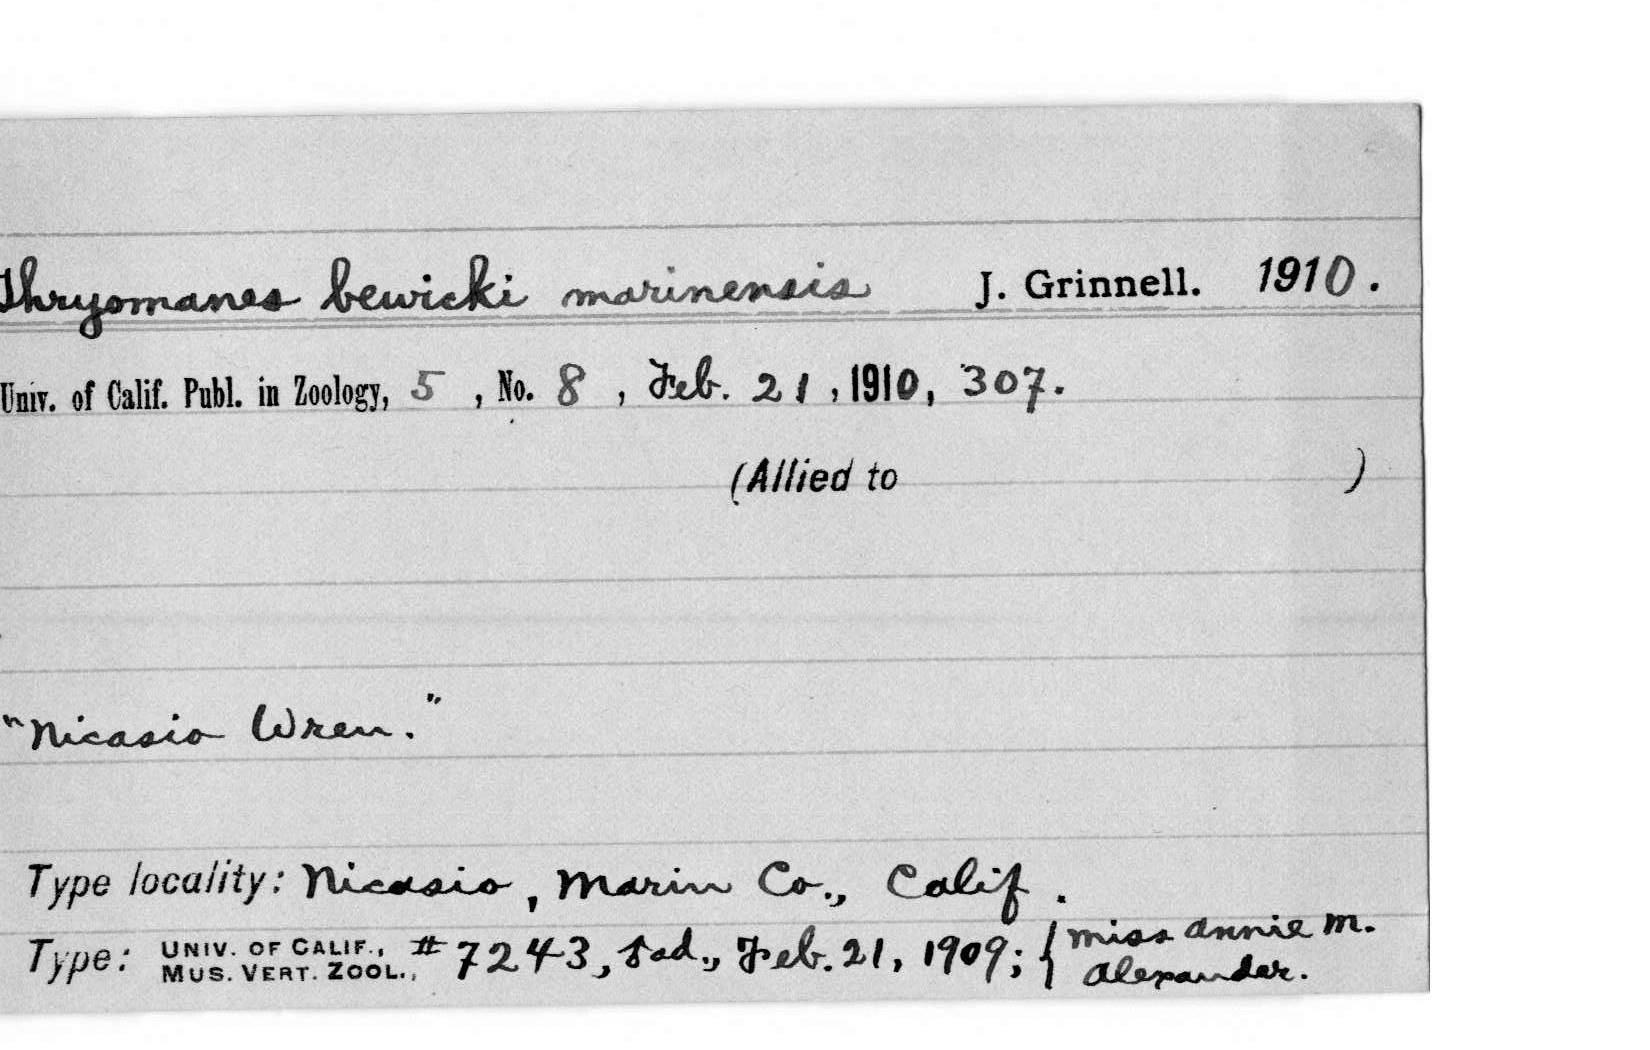 Thryomanes bewicki marinensis J. Grinnell. 1910.
Univ. of Calif. Publ. in Zoology, 5, No. 8, Feb. 21, 1910, 307.
(Allied to )
"Nicasio Wren."
Type locality: Nicasio, Marin Co., Calif.
Type: UNIV. OF CALIF., MUS. VERT. ZOOL., #7243, ad., Feb. 21, 1909; {Miss Annie M.
Alexander.